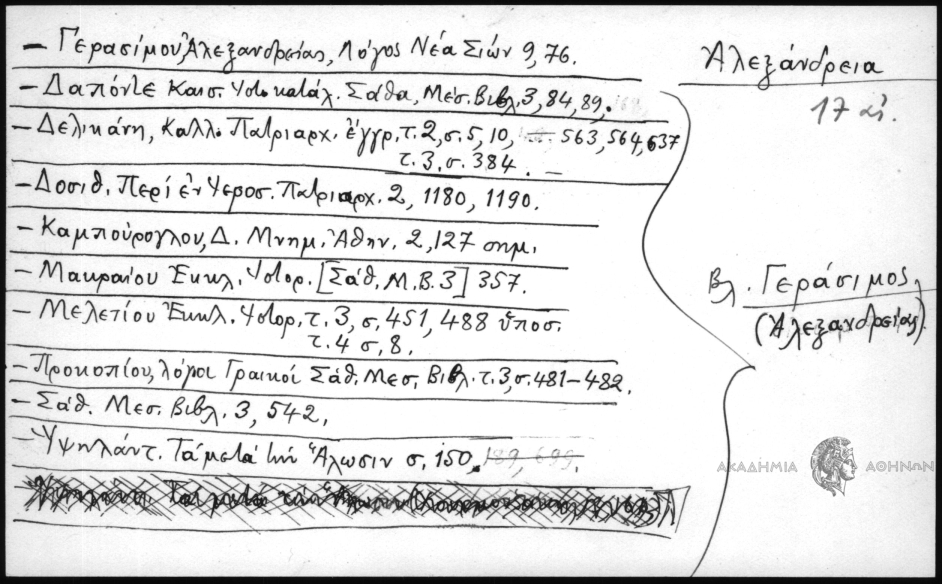 Ἀλεξάνδρεια
17 αἰ.
— Γερασίμου, Ἀλεξανδρείας, Λόγος Νέα Σιών 9, 76.
— Δαπόντε Καισ. Ἱστ. καταλ. Σάθα, Μεσ. Βιβλ. 3, 84, 89.
— Δελικάνη, Καλλ. Πατριαρχ. ἔγγρ. τ. 2, σ. 5, 10, 563, 564, 637
τ. 3. σ. 384. —
— Δοσιθ. Περί ἐν Ἱεροσ. Πατριαρχ. 2, 1180, 1190.
— Καμπούρογλου, Δ. Μνημ. Ἀθην. 2, 127 σημ.
— Μακραίου Ἐκκλ. Ἱστορ. [Σάθ. Μ. Β. 3] 357.
— Μελετίου Ἐκκλ. Ἱστορ. τ. 3, σ. 451, 488 ὑποσ.
τ. 4 σ. 8.
— Προκοπίου, λόγιοι Γραικοί Σάθ. Μεσ. Βιβλ. τ. 3, σ. 481–482.
— Σάθ. Μεσ. Βιβλ. 3, 542.
— Ὑψηλάντ. Τά μετά τήν Ἅλωσιν σ. 150, 189, 699.
Βλ. Γεράσιμος
(Ἀλεξανδρείας).
ΑΚΑΔΗΜΙΑ ΑΘΗΝΩΝ